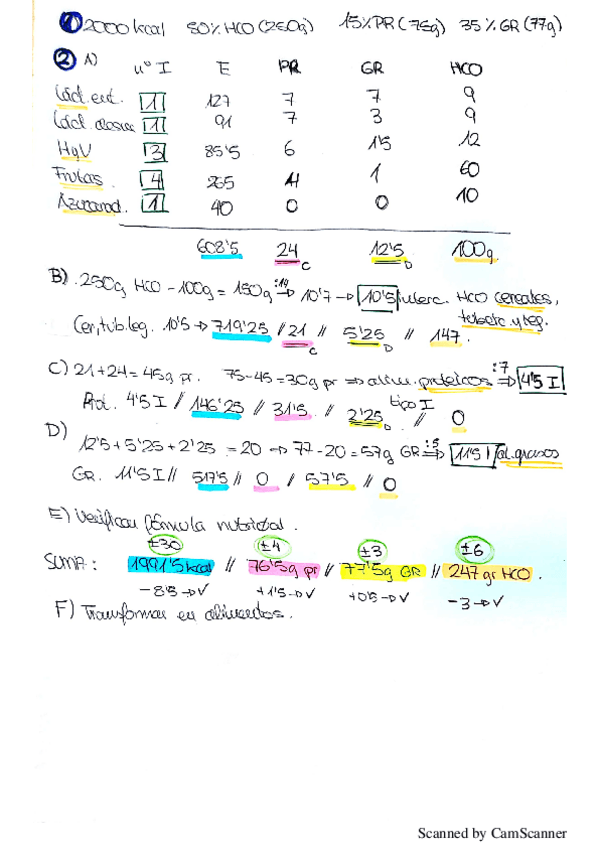 ① 2000 kcal 50% HCO (250g) 15% PR (75g) 35% GR (77g)
② A) nº I E PR GR HCO
Láct. ent. 1 127 7 7 9
Láct. 1 91 7 3 9
HyV 3 85'5 6 1'5 12
Frutas. 4 265 4 1 60
Azucarad. 1 40 0 0 10
608'5 24 C 12'5 D 100g
B) 250g HCO - 100g = 150g :14 → 10'7 → 10'5 interc. HCO cereales, tubérc. y leg.
Cer, tub. leg. 10'5 → 719'25 // 21 C // 5'25 D // 147.
C) 21 + 24 = 45g pr. 75-45 = 30g pr ⇒ alim. proteicos :7 ⇒ 4'5 I
tipo I
Prot. 4'5 I // 146'25 // 31'5 // 2'25 D // 0
D) 12'5 + 5'25 + 2'25 = 20 → 77-20 = 57g GR :5 ⇒ 11'5 I al. grasos
GR. 11'5 I // 517'5 // 0 / 57'5 // 0
E) Verificar fórmula nutricial.
±30 ±4 ±3 ±6
SUMA: 1991'5 kcal // 76'5g pr // 77'5g GR // 247 gr HCO.
-8'5 → √ +1'5 → √ +0'5 → √ -3 → √
F) Transformar en alimentos.
Scanned by CamScanner